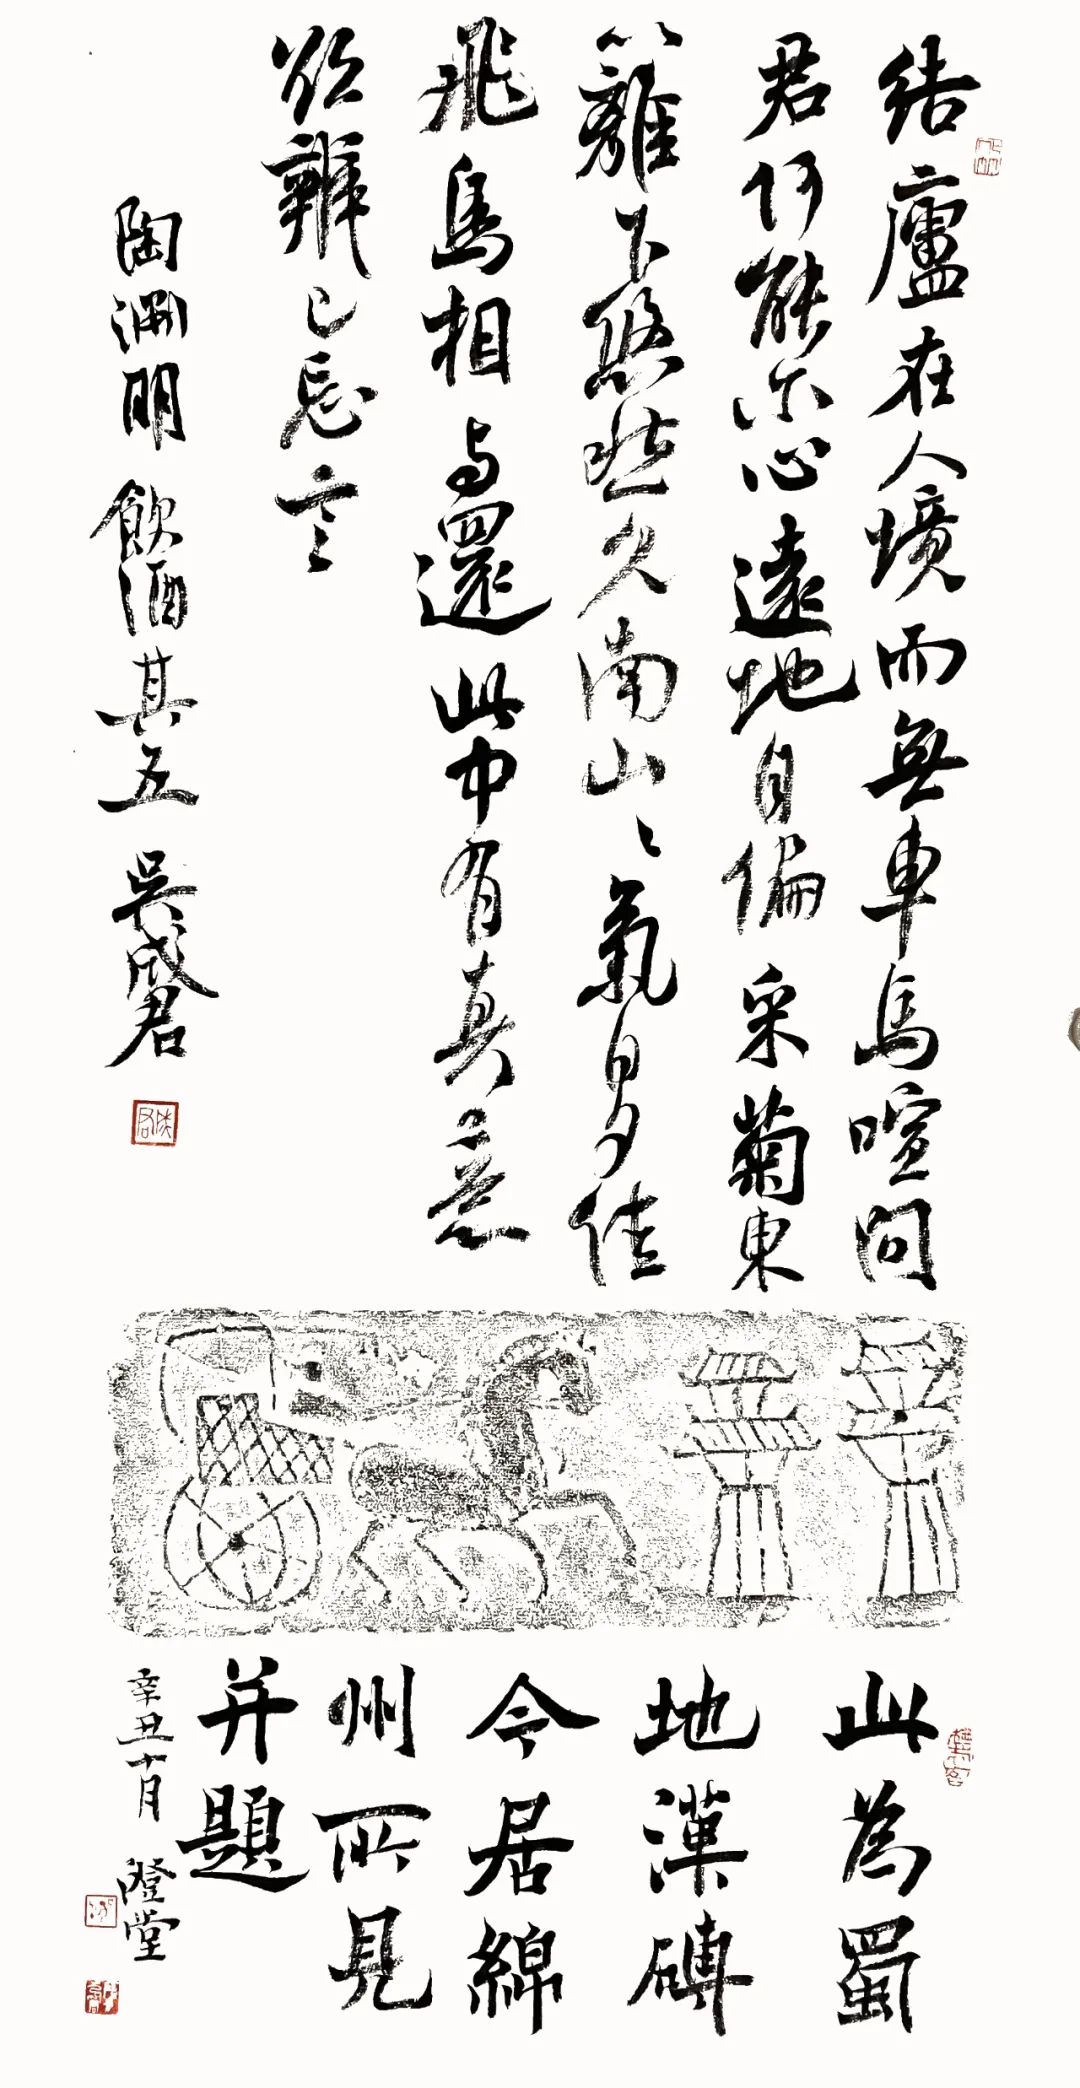 結廬在人境而無車馬喧问
君何能尔心遠地自偏采菊東
籬下悠然見南山〻氣日夕佳
飛鳥相与還此中有真意
欲辨已忘言
陶渊明飲酒其五 吳成君
成君
此為蜀
地漢磚
今居綿
州所見
并題
辛丑十月 澄堂